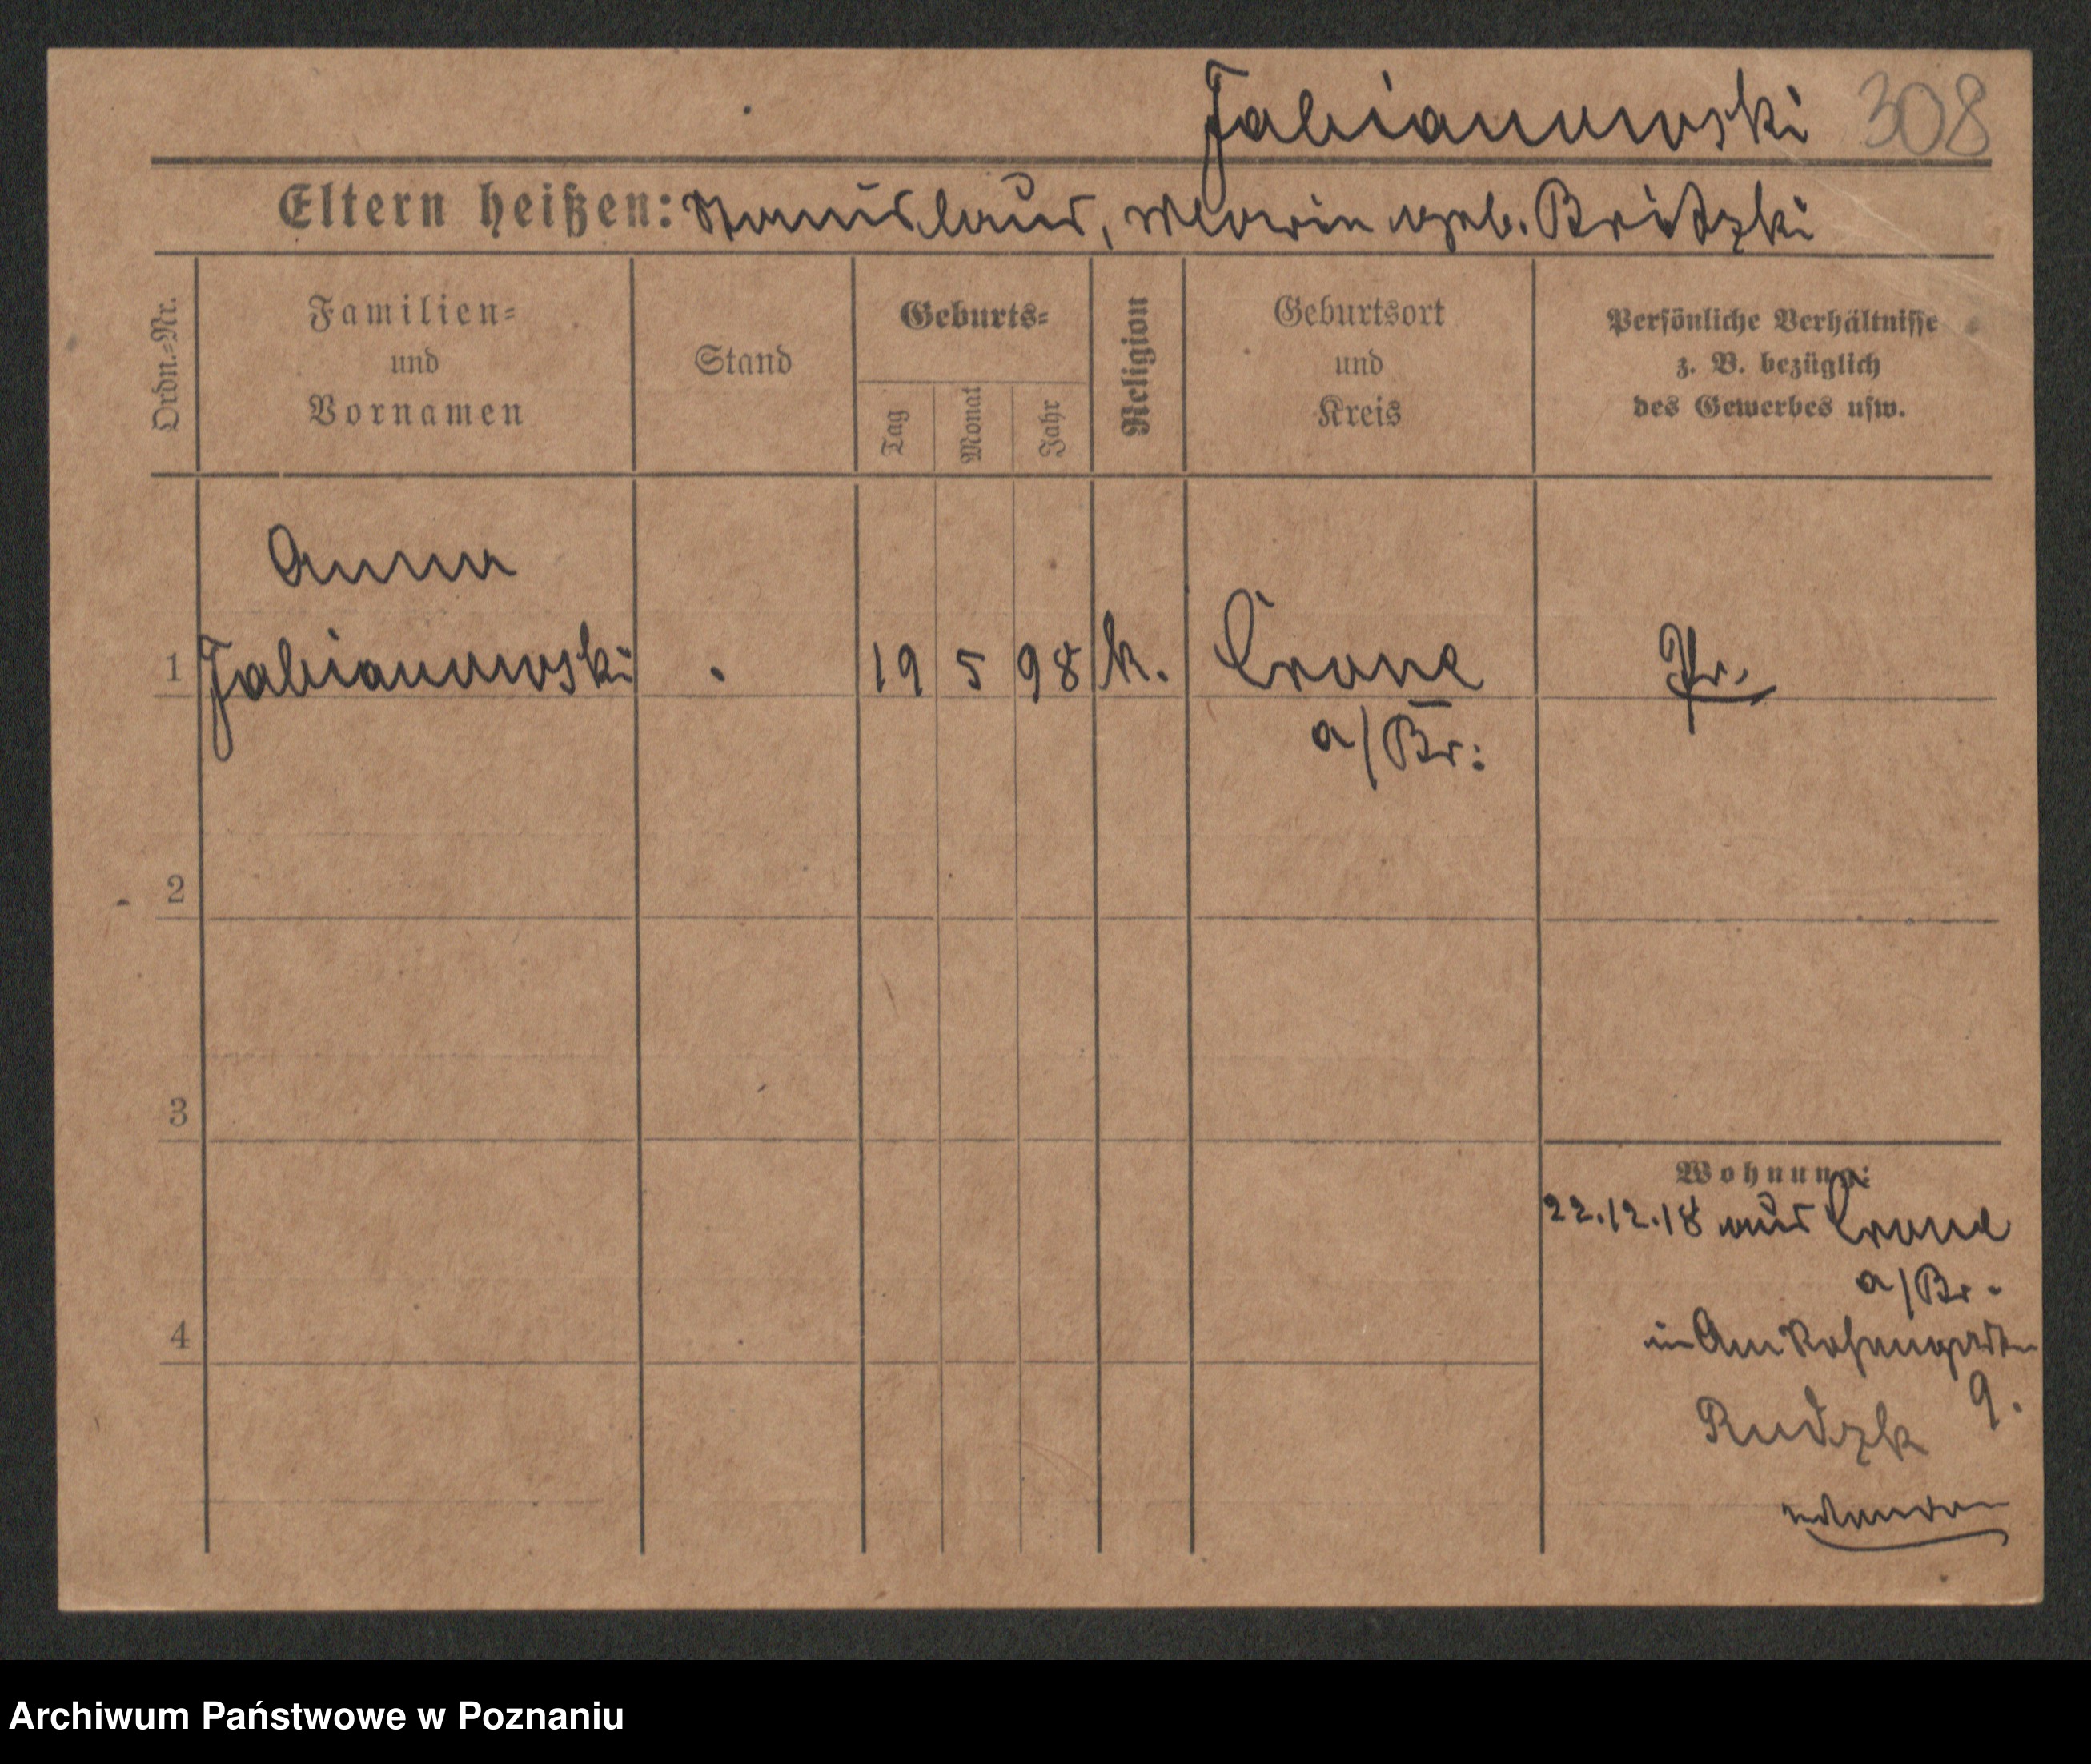 Fabianowski 308
Eltern heißen: Stanislaus, Maria geb. Britzki
Ordn.-Nr.
Familien-
und
Vornamen
Stand
Geburts-
Tag
Monat
Jahr
Religion
Geburtsort
und
Kreis
Persönliche Verhältnisse
z. B. bezüglich
des Gewerbes usw.
Anna
1 Fabianowski . 19 5 98 k. Crone Pr.
a/Br:
2
3
4
Wohnung:
22.12.18 aus Crone
a/Br.
in Am Rosengarten
9.
Rudzk
Archiwum Państwowe w Poznaniu